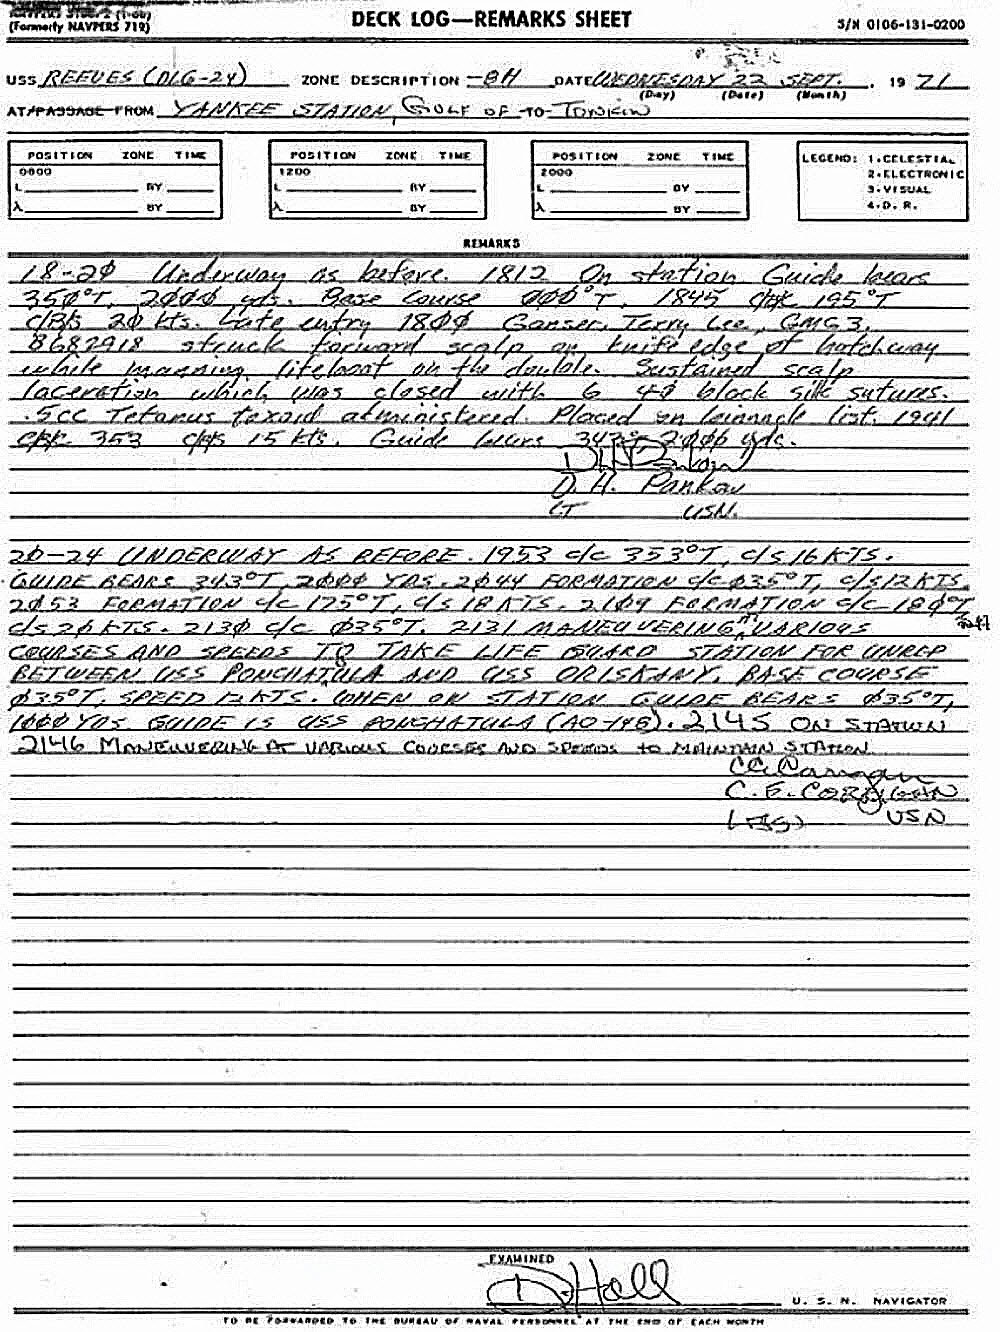 NAVPERS 3100/2 (1-66)
(Formerly NAVPERS 719)
DECK LOG—REMARKS SHEET
S/N 0106-131-0200
USS REEVES (DLG-24) ZONE DESCRIPTION -8H DATE WEDNESDAY 22 SEPT. , 19 71
(Day) (Date) (Month)
AT/PASSAGE FROM YANKEE STATION, GULF OF TO TONKIN
POSITION ZONE TIME
0800
L BY
λ BY
POSITION ZONE TIME
1200
L BY
λ BY
POSITION ZONE TIME
2000
L BY
λ BY
LEGEND: 1-CELESTIAL
2-ELECTRONIC
3-VISUAL
4-D. R.
REMARKS
18-2Ø Underway as before. 1812 On station Guide bears
35Ø°T, 2ØØØ yds. Base Course ØØØ°T. 1845 c/c 195°T
c/s 2Ø kts. Late entry 18ØØ Ganser, Terry Lee, GMG3,
B682918 struck forward scalp on knife edge of hatchway
while manning lifeboat on the double. Sustained scalp
laceration which was closed with 6 4Ø black silk sutures.
.5cc Tetanus toxoid administered. Placed on binnacle list. 1941
c/c 353 c/s 15 kts. Guide bears 343° 2ØØØ yds.
D. H. Pankow
LT USN.
2Ø-24 UNDERWAY AS BEFORE. 1953 c/c 353°T, c/s 16 KTS.
GUIDE BEARS 343°T, 2ØØØ YDS. 2Ø44 FORMATION c/c Ø35°T, c/s 12 KTS.
2Ø53 FORMATION c/c 175°T, c/s 18 KTS. 21Ø9 FORMATION c/c 18Ø°T
c/s 2Ø KTS. 213Ø c/c Ø35°T. 2131 MANEUVERING VARIOUS
COURSES AND SPEEDS TO TAKE LIFE GUARD STATION FOR UNREP
BETWEEN USS PONCHATULA AND USS ORISKANY, BASE COURSE
Ø35°T, SPEED 12 KTS. WHEN ON STATION GUIDE BEARS Ø35°T,
1ØØØ YDS GUIDE IS USS PONCHATULA (AO-148). 2145 ON STATION
2146 MANEUVERING AT VARIOUS COURSES AND SPEEDS TO MAINTAIN STATION
C. E. CORRIGAN
LTJG USN
EXAMINED
D. Hall
U. S. N. NAVIGATOR
TO BE FORWARDED TO THE BUREAU OF NAVAL PERSONNEL AT THE END OF EACH MONTH